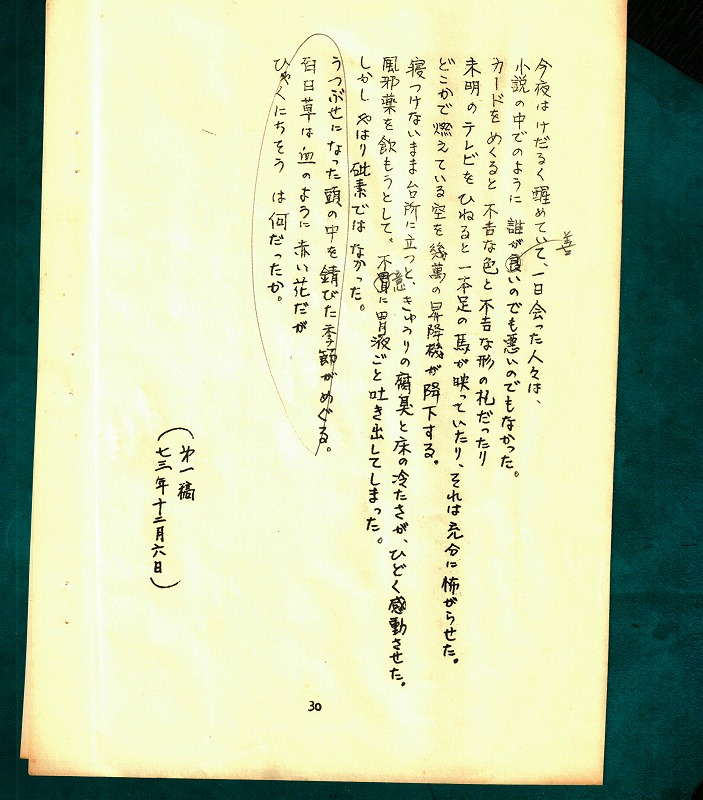 今夜はけだるく醒めていて、一日会った人々は、
小説の中でのように 誰が良いのでも悪いのでもなかった。
善
カードをめくると 不吉な色と不吉な形の札だったり
未明のテレビをひねると 一本足の馬が映っていたり、それは充分に怖がらせた。
どこかで燃えている空を幾萬の昇降機が降下する。
寝つけないまま台所に立つと、きゅうりの腐臭と床の冷たさが、ひどく感動させた。
風邪薬を飲もうとして、不冒に胃液ごと吐き出してしまった。
意
しかし やはり砒素では なかった。
うつぶせになった頭の中を錆びた季節がめぐる。
百日草は血のように赤い花だが
ひゃくにちそう は何だったか。
(第一稿
七三年十二月六日)
30